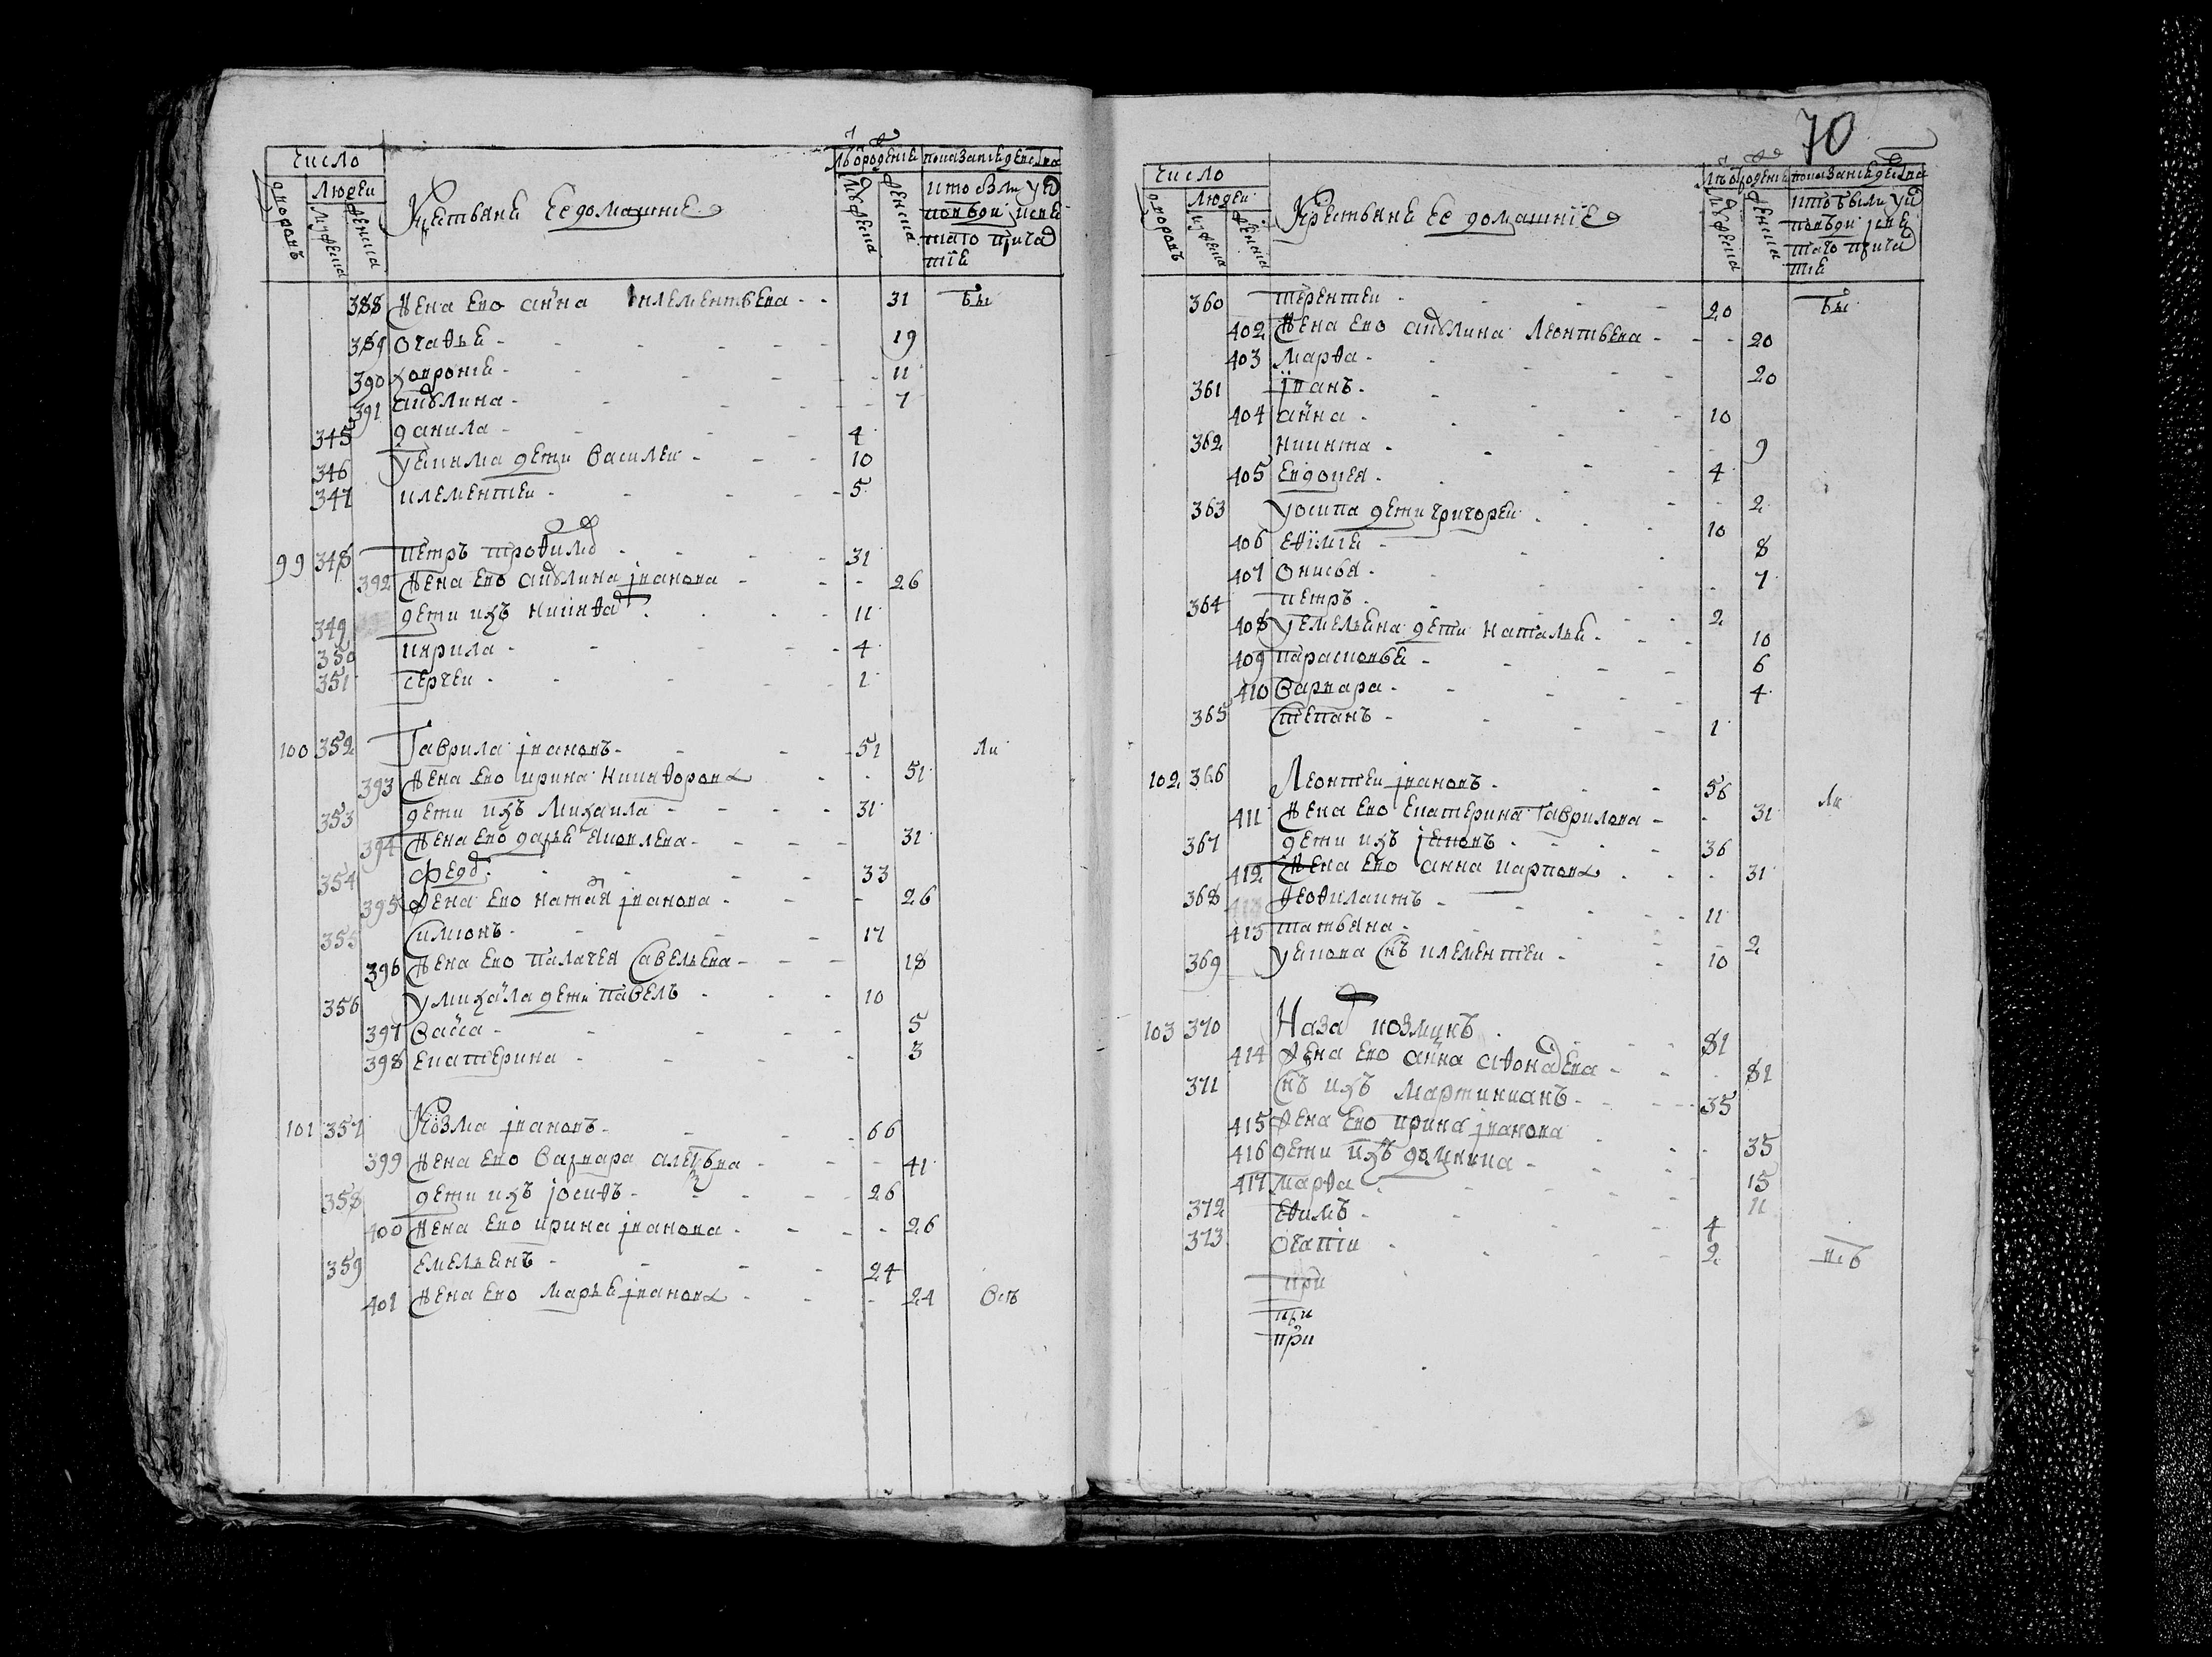 число
Людеи
дворовъ
мужеска
женска
Крестьяне Ее домашние
Лѣ о рожденiе
мужеска
женска
показанiе действа
кто был у
исповеди и свя
таго прича
стiе
388 Жена Ево анна клементьева - - 31 бы
389 Огафья - 19
390 Ховронiя - 11
391 акулина - 7
345 данила - 4
346 У якима дети Василеи - 10
347 клементеи - 5
99 348 Петръ трофимо - 31
392 Жена Ево акулина iванова - 26
349 дети ихъ никифо - 11
350 кирила - 4
351 сергеи - 1
100 352 Гаврила iвановъ - 51 ли
393 Жена Ево ирина никифорова - 51
353 дети ихъ Михаила - 31
394 Жена Ево дарья яковлева - 31
354 федо - 33
395 Жена Ево наталя iванова - 26
355 Симионъ - 17
396 Жена Ево Палагея Савельева - 18
356 У михаила дети павелъ - 10
397 Васса - 5
398 Екатерина - 3
101 357 Козма iвановъ - 66
399 Жена Ево Варвара алексѣвна - 41
358 дети ихъ iосифъ - 26
400 Жена Ево ирина iванова - 26
359 емельянъ - 24
401 Жена Ево Марья iванова - 24 всѣ
70
число
Людеи
дворовъ
мужеска
женска
Крестьяне Ее домашнiе
Лѣ о рожденiе
мужеска
женска
показанiе действа
кто были у
исповѣди и свя
таго прича
стiе
360 терентеи - 20 бы
402 Жена Ево акулина Леонтьева - 20
403 марфа - 20
361 iванъ - 10
404 анна - 9
362 никита - 4
405 Евдокея - 2
363 У осипа дети григореи - 10
406 Ефимiя - 8
407 Онисья - 7
364 петръ - 2
408 У емельяна дети Наталья - 10
409 парасковья - 6
410 Варвара - 4
365 Степанъ - 1
102 366 Леонтеи iвановъ - 56 ли
411 Жена Ево Екатерина Гаврилова - 31
367 дети ихъ яковъ - 36
412 Жена Ево анна карпова - 31
368 Феофилактъ - 11
413 татьяна - 2
369 У якова снъ клементеи - 10
103 370 Наза козминъ - 81
414 Жена Ево анна афонасева - 81
371 Снъ ихъ Мартинианъ - 35
415 Жена Ево ирина iванова - 35
416 дети ихъ домника - 15
417 марфа - 11
372 Ефимъ - 4
373 Огапiи - 2
при
при
при